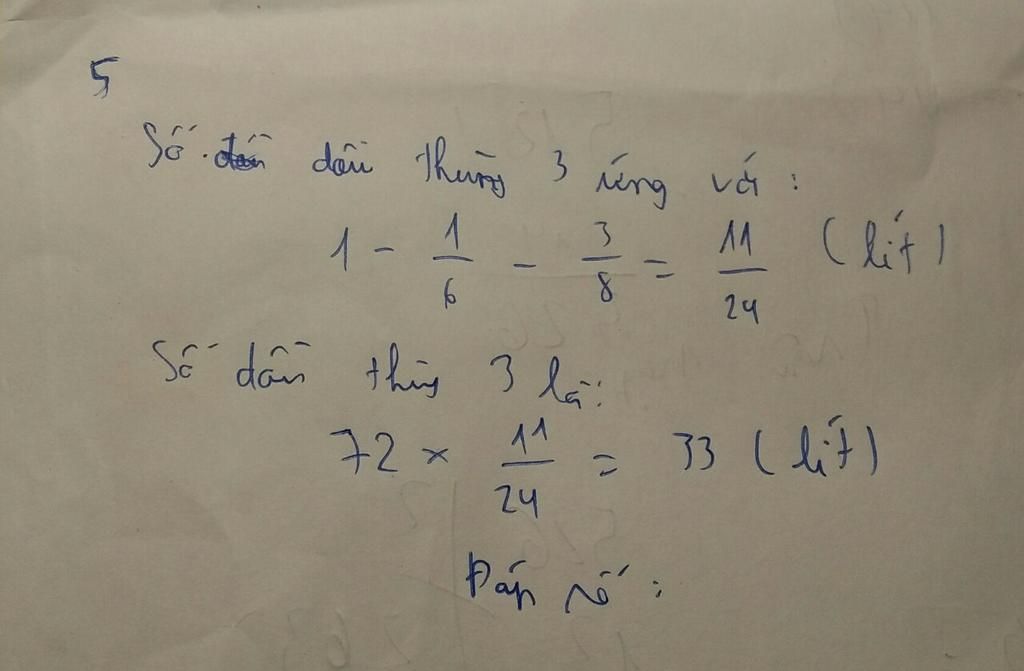 5
Số dầu thùng 3 ứng với :
1 - 1/6 - 3/8 = 11/24 (lít)
Số dầu thùng 3 là:
72 × 11/24 = 33 (lít)
Đáp số :